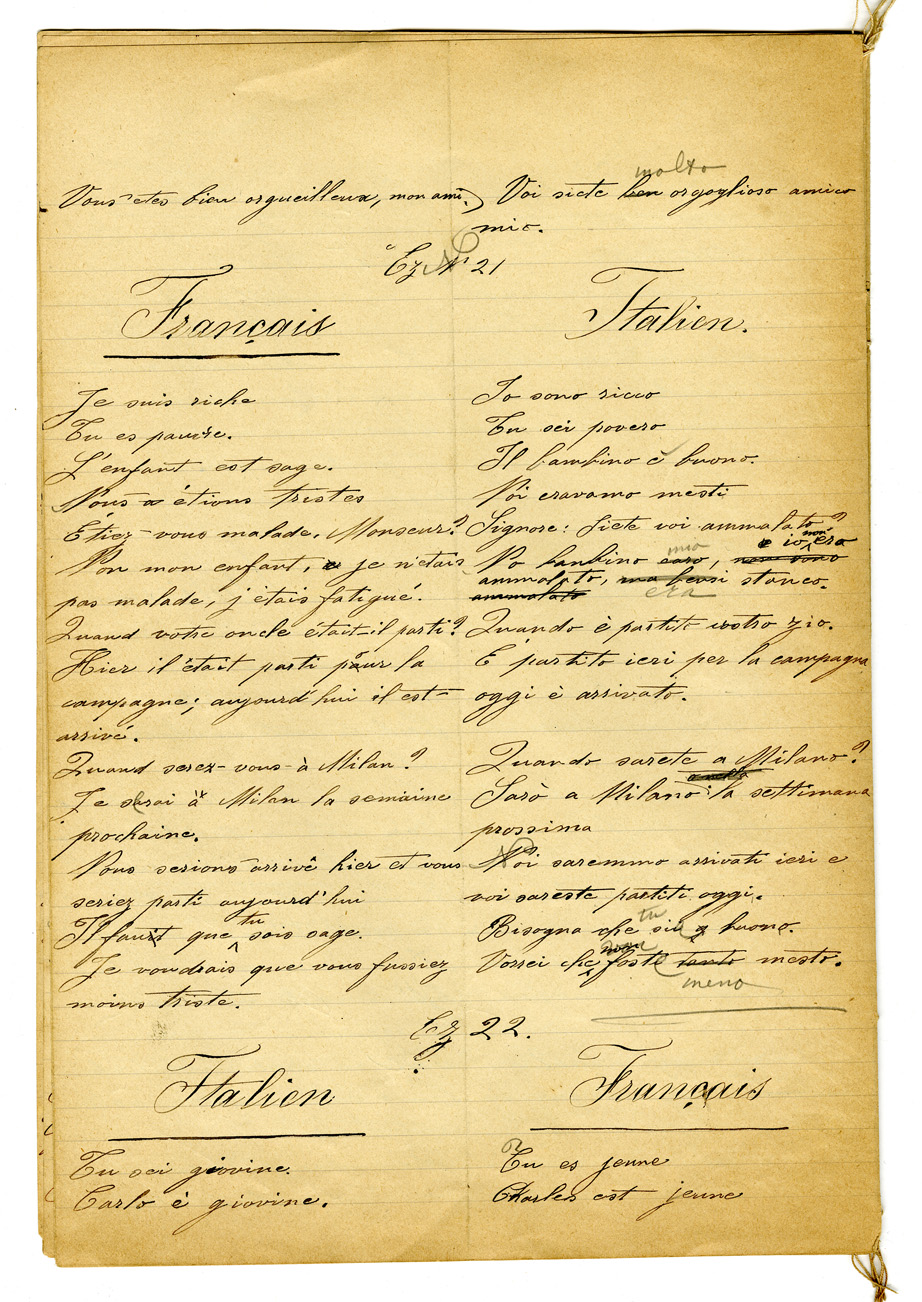 Vous etes bien orgueilleux, mon ami.) Voi siete ben orgoglioso amico
molto
mio.
Ez Nº 21
Français
Je suis riche
Tu es pauvre.
L'enfant est sage.
Nous étions tristes
Etiez-vous malade, Monseur?
Non mon enfant, je n'etais
pas malade, j'étais fatigué.
Quand votre oncle était-il parti?
Hier il était parti pour la
campagne; aujourd'hui il est-
arrivé.
Quand serez-vous-à Milan?
Je serai à Milan la semaine
prochaine.
Nous serions arrivé hier et vous
seriez parti aujourd'hui
Il faut que tu sois sage.
Je voudrais que vous fussiez
moins triste.
Italien.
Io sono ricco
Tu sei povero
Il bambino è buono.
Noi eravamo mesti
Signore: siete voi ammalato?
e io non ero
No bambino caro, non sono
mio
ammalato, ma bensi stanco.
ammalato era
Quando è partito vostro zio.
È partito ieri per la campagna
oggi è arrivato.
Quando sarete a Milano?
Sarò a Milano la settimana
prossima
Noi saremmo arrivati ieri e
voi sareste partiti oggi.
tu
Bisogna che sii buono.
Vorrei che foste tanto mesto.
meno
Ez 22.
Italien
Tu sei giovine.
Carlo è giovine.
Français
Tu es jeune
Charles est jeune